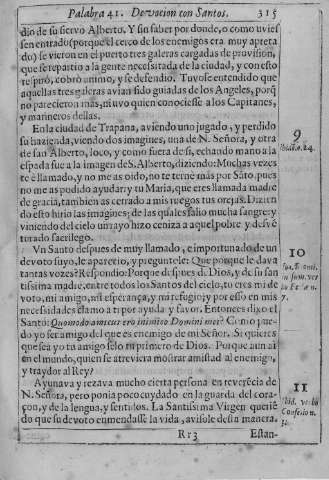 Palabra 41. Devocion con Santos. 315
dio de su siervo Alberto. Y sin saber por donde, o como uvies
sen entrado (porque el cerco de los enemigos era muy apreta
do) se vieron en el puerto tres galeras cargadas de provision,
que se repartio a la gente necessitada de la ciudad, y con esto
respiró, cobró animo, y se defendió. Tuvose entendido que
aquellas tres galeras avian sido guiadas de los Angeles, porq̃
no parecieron mas, ni uvo quien conociesse a los Capitanes,
y marineros dellas.
En la ciudad de Trapana, aviendo uno jugado, y perdido
su hazienda, viendo dos imagines, una de N. Señora, y otra
de san Alberto, loco, y como fuera de si, echando mano a la
espada fue a la imagen de S. Alberto, diziendo: Muchas vezes
te è llamado, y no me as oido, no te ternè mas por Sãto, pues
no me as podido ayudar: y tu Maria, que eres llamada madre
de gracia, tambien as cerrado a mis ruegos tus orejas. Dizien
do esto hirio las imagines; de las quales salio mucha sangre: y
viniendo del cielo un rayo hizo ceniza a aquel pobre y desvẽ
turado sacrilego.
Un Santo despues de muy llamado, e importunado de un
devoto suyo, le aparecio, y preguntele: Que porque le dava
tantas vozes? Respondio: Porque despues de Dios, y de su san
tissima madre, entre todos los Santos del cielo, tu eres mi de
voto, mi amigo, mi esperança, y mi refugio; y por esso en mis
necessidades clamo a ti por ayuda y favor. Entonces dixo el
Santo: Quomodo amicus ero inimico Domini mei? Como pue-
do yo ser amigo del que es enemigo de mi Señor. Si quieres
que sea yo tu amigo selo tu primero de Dios. Porque aun aì
en el mundo, quien se atreviera mostrar amistad al enemigo,
y traydor al Rey?
Ayunava y rezava mucho cierta persona en reverẽcia de
N. Señora, pero ponia poco cuydado en la guarda del cora-
çon, y de la lengua, y sentidos. La Santissima Virgen queriẽ
do que su devoto enmendasse la vida, avisole desta manera.
Rr3 Estan-
9
Ibid. a. 24.
10
7.
11
Ibid. verbo
Confessio n.